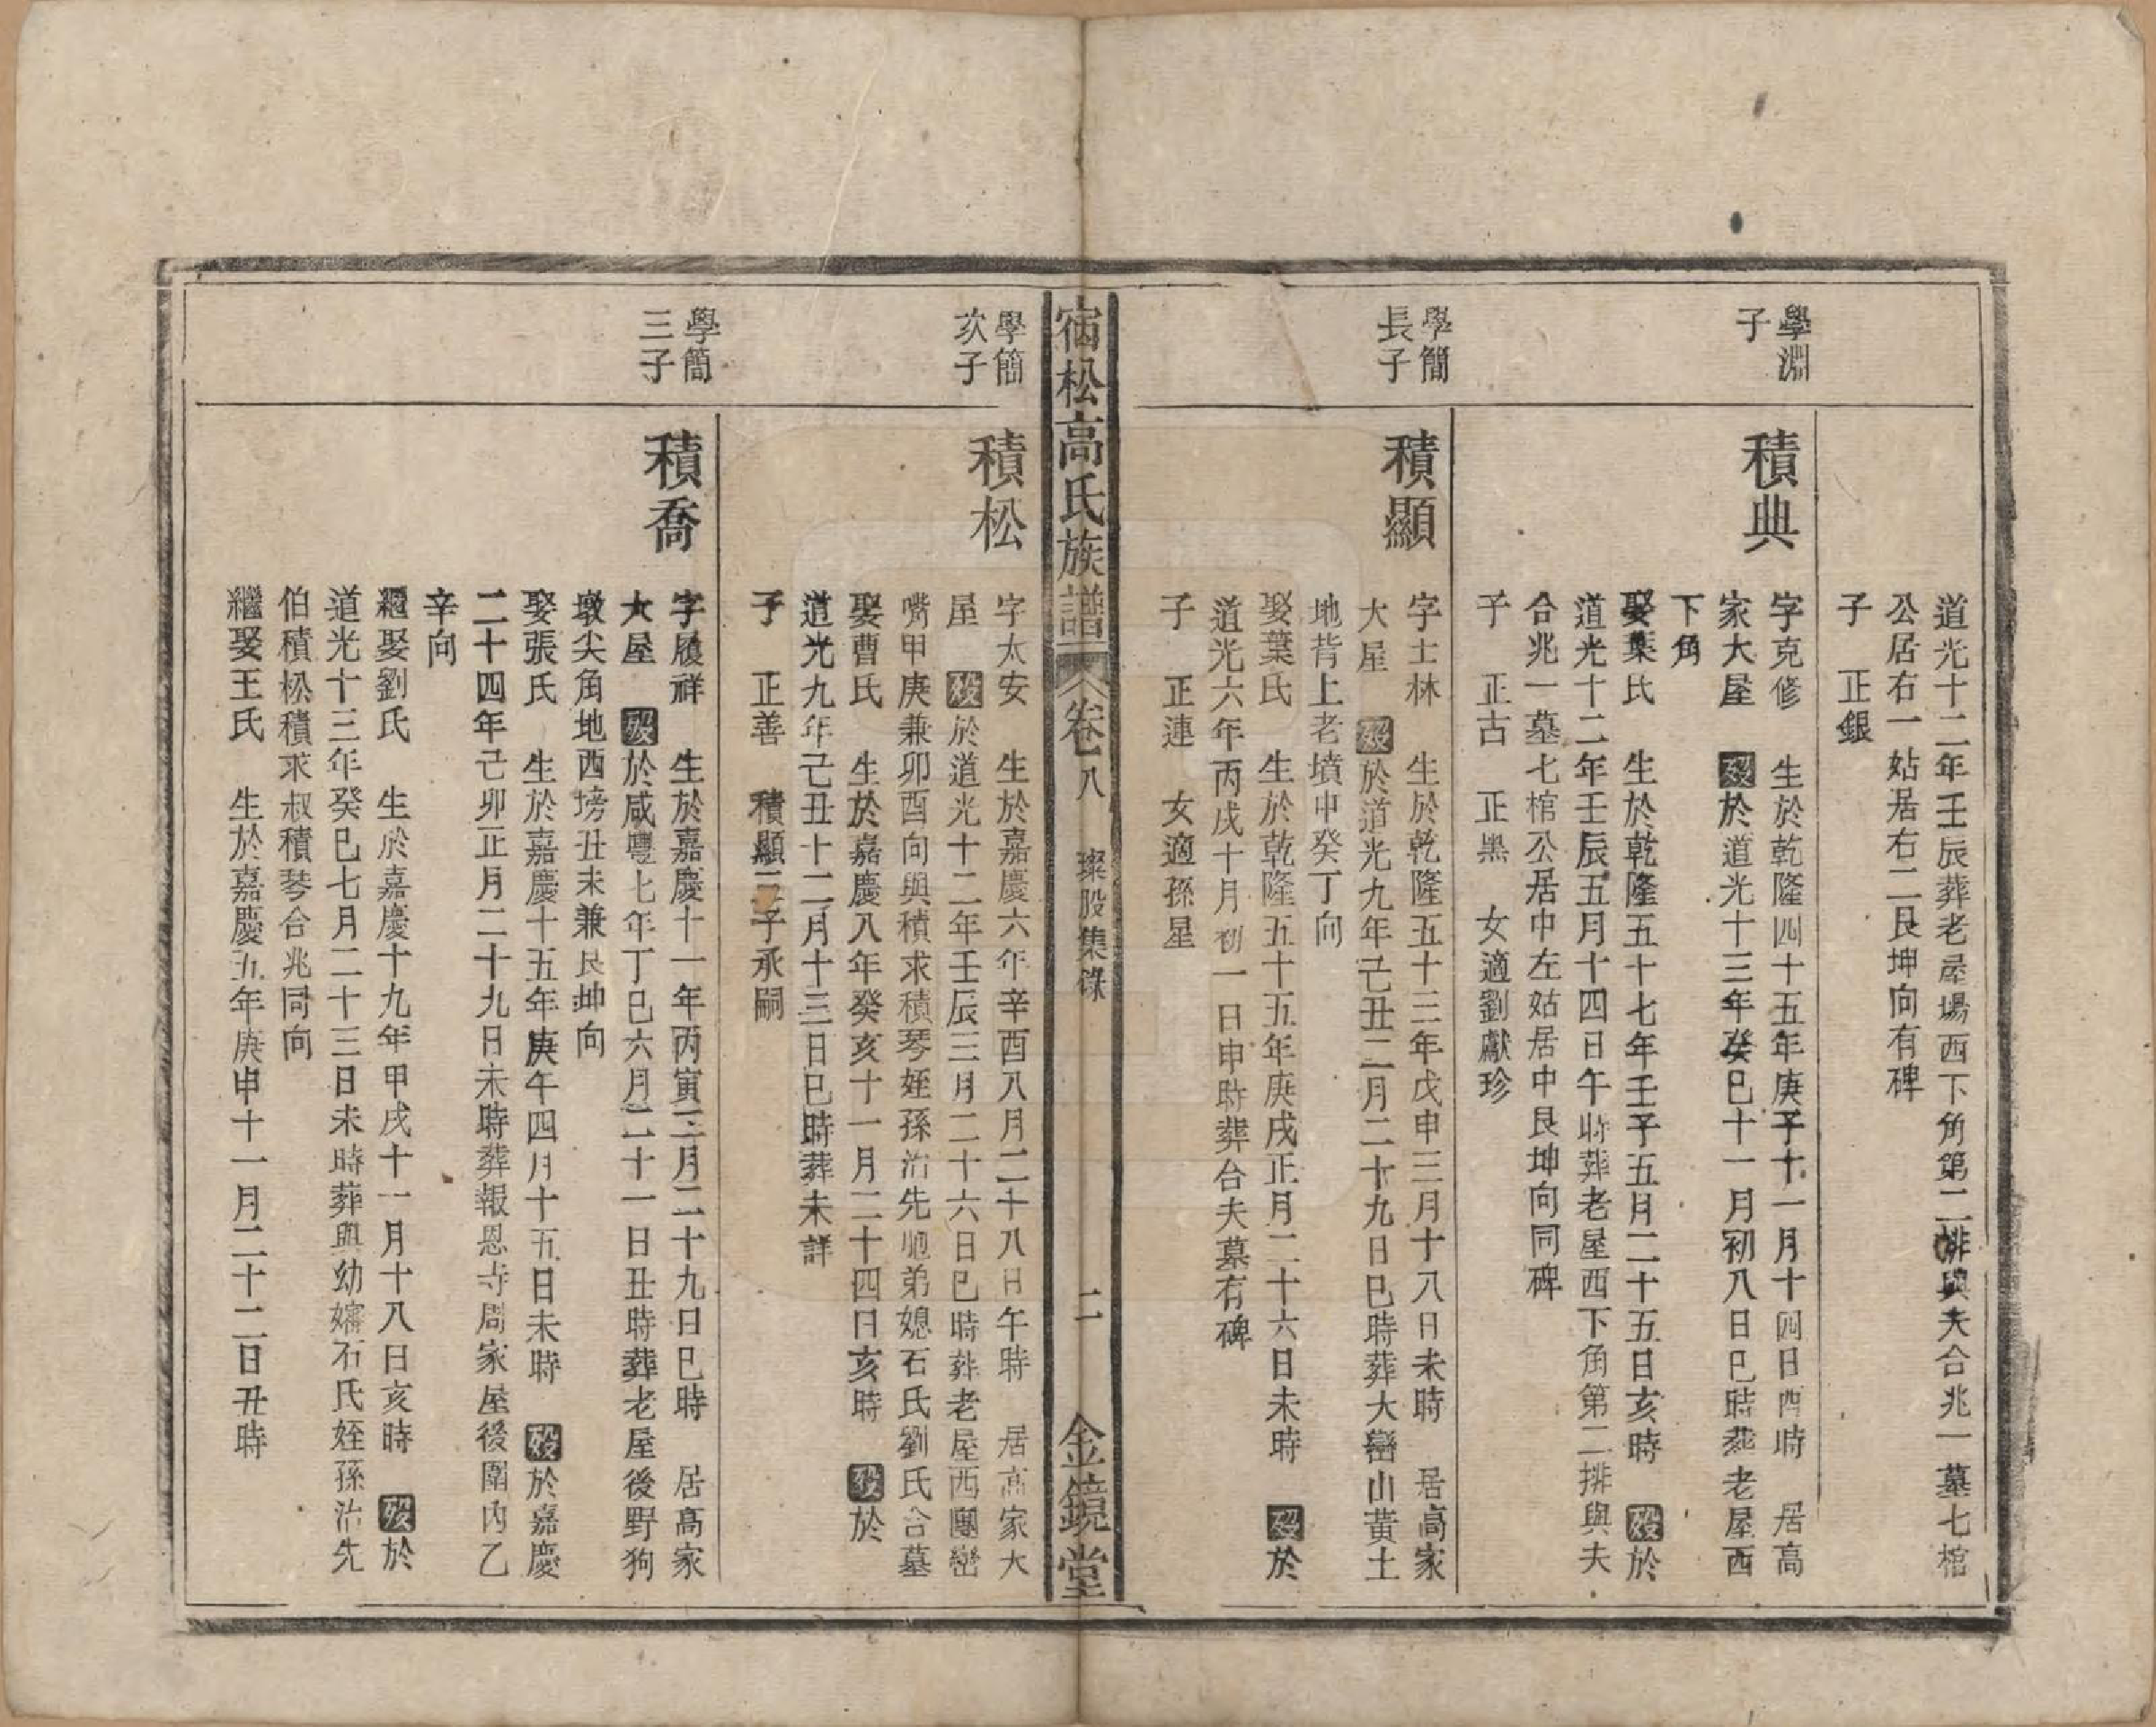 道光十二年壬辰葬老屋場西下角第二排與夫合兆一墓七棺
公居右一姑居右二艮坤向有碑
子　正銀
學淵
子
積典
字克修　生於乾隆四十五年庚子十一月十四日酉時　居高
家大屋　歿於道光十三年癸巳十一月初八日巳時葬老屋西
下角
娶葉氏　生於乾隆五十七年壬子五月二十五日亥時　歿於
道光十二年壬辰五月十四日午時葬老屋西下角第二排與夫
合兆一墓七棺公居中左姑居中艮坤向同碑
子　正古　正黑　女適劉獻珍
學簡
長子
積顯
字士林　生於乾隆五十三年戊申三月十八日未時　居高家
大屋　歿於道光九年己丑二月二十九日巳時葬大巒山黃土
地背上老墳申癸丁向
娶葉氏　生於乾隆五十五年庚戌正月二十六日未時　歿於
道光六年丙戌十月初一日申時葬合夫墓有碑
子　正連　女適孫星
宿松高氏族譜　卷八　璨股集錄　二　金鏡堂
學簡
次子
積松
字太安　生於嘉慶六年辛酉八月二十八日午時　居高家大
屋　歿於道光十二年壬辰三月二十六日巳時葬老屋西團巒
嘴甲庚兼卯酉向與積求積琴姪孫治先弟媳石氏劉氏合墓
娶曹氏　生於嘉慶八年癸亥十一月二十四日亥時　歿於
道光九年己丑十二月十三日巳時葬未詳
子　正善　積顯子承嗣
學簡
三子
積喬
字履祥　生於嘉慶十一年丙寅三月二十九日巳時　居高家
大屋　歿於咸豐七年丁巳六月二十一日丑時葬老屋後野狗
墩尖角地西塝丑未兼艮坤向
娶張氏　生於嘉慶十五年庚午四月十五日未時　歿於嘉慶
二十四年己卯正月二十九日未時葬報恩寺周家屋後園內乙
辛向
繼娶劉氏　生於嘉慶十九年甲戌十一月十八日亥時　歿於
道光十三年癸巳七月二十三日未時葬與幼嬸石氏姪孫治先
伯積松積求叔積琴合兆同向
繼娶王氏　生於嘉慶五年庚申十一月二十二日丑時